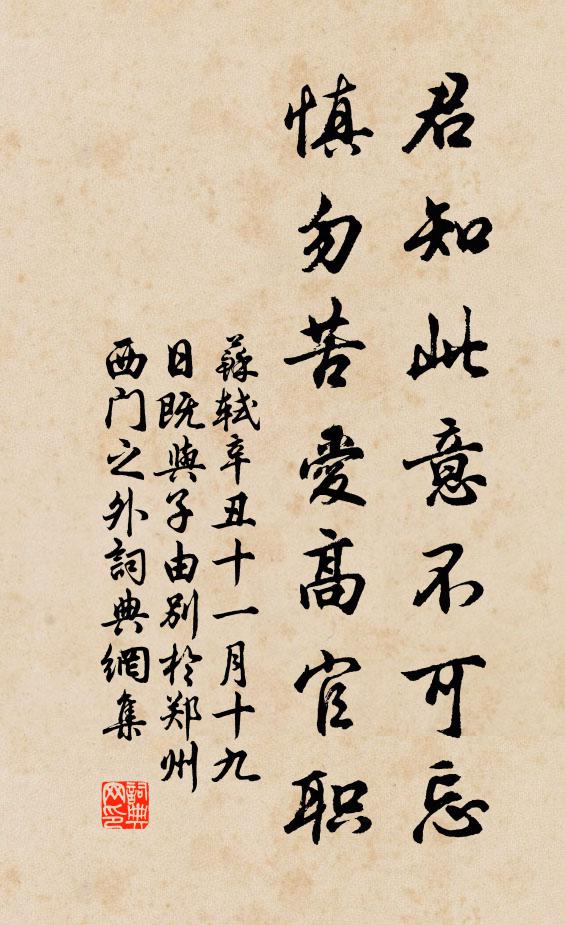 君知此意不可忘
慎勿苦愛高官职
蘇轼辛丑十一月十九
日既與子由别於郑州
西门之外詞典網集
詞典
网印